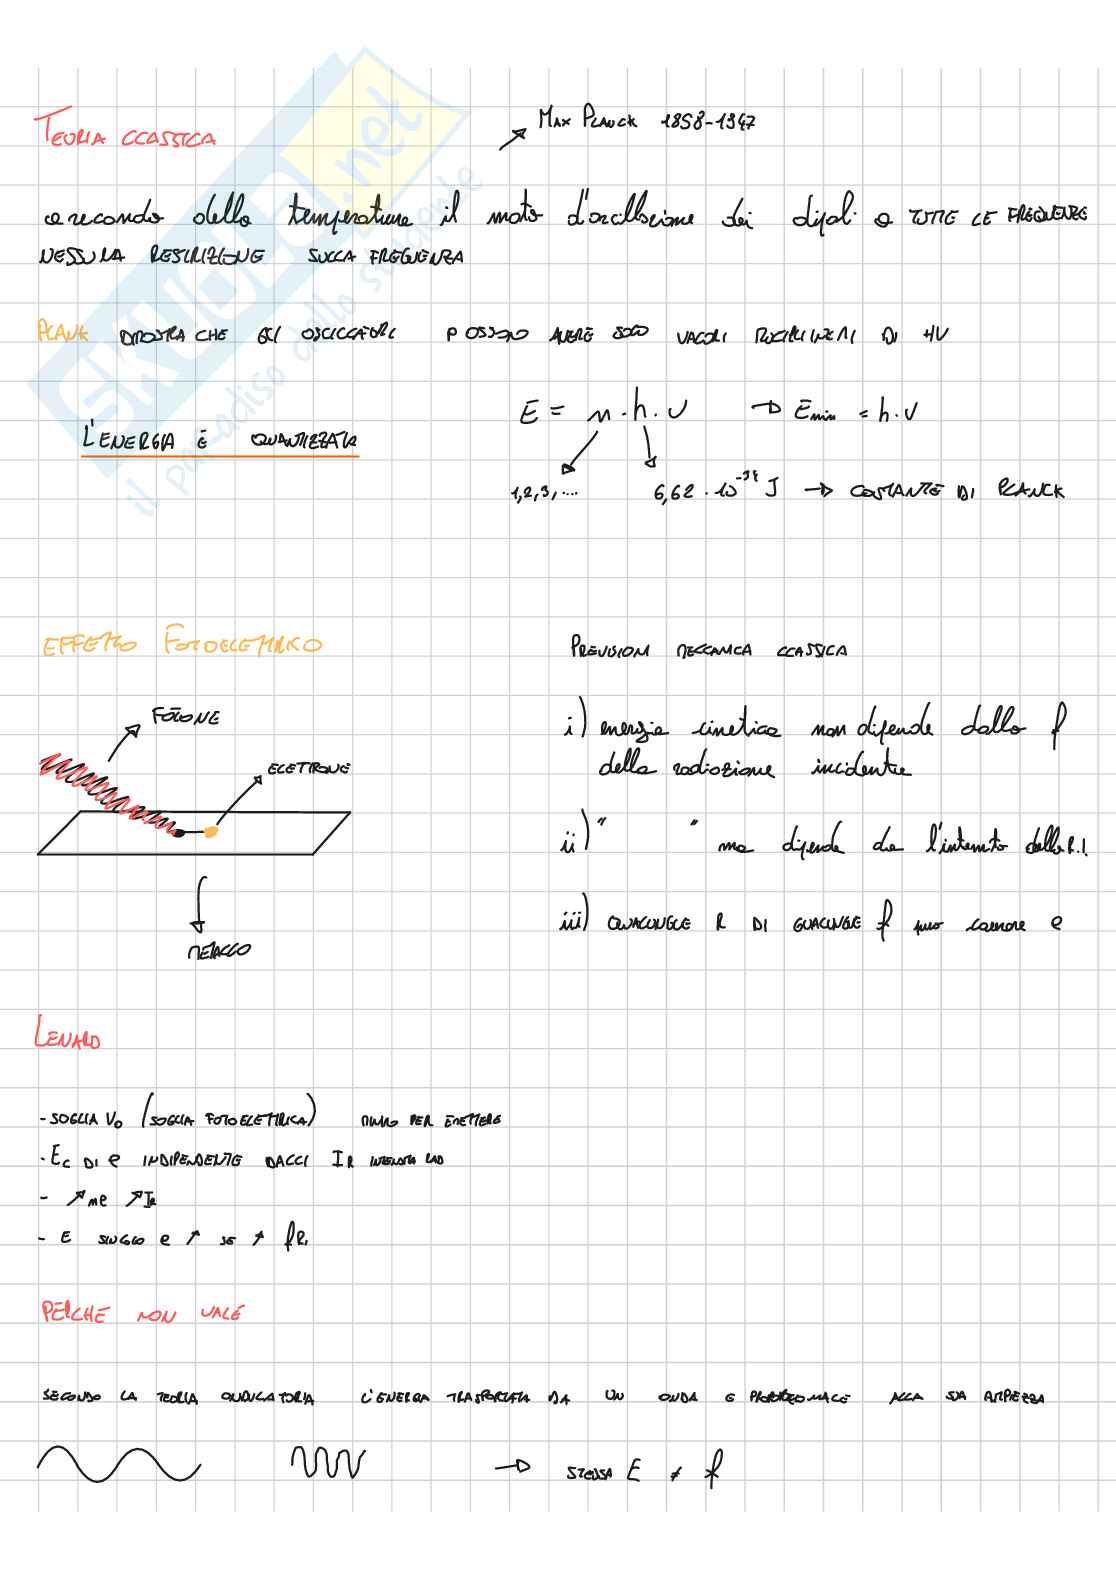 TEORIA CLASSICA
MAX PLANCK 1858-1947
a secondo della temperatura il moto d'oscillazione dei dipoli a TUTTE LE FREQUENZE
NESSUNA RESTRIZIONE SULLA FREQUENZA
PLANK DIMOSTRA CHE GLI OSCILLATORI POSSONO AVERE SOLO VALORI MULTIPLI INTERI DI HV
E = n · h · ν → Emin = h · ν
L'ENERGIA È QUANTIZZATA
1,2,3,.... 6,62 · 10⁻³⁴ J → COSTANTE DI PLANCK
EFFETTO FOTOELETTRICO
PREVISIONI MECCANICA CLASSICA
FOTONE
i) energia cinetica non dipende dalla f
della radiazione incidente
ELETTRONE
ii) " " ma dipende da l'intensità della R.I.
iii) QUALUNQUE R DI QUALUNQUE f può causare e
METALLO
LENARD
- SOGLIA V₀ (SOGLIA FOTOELETTRICA) MINIMO PER EMETTERE
- Ec DI e INDIPENDENTE DALLI IR INTENSITÀ RAD
- ↗ ne ↗ IR
- E SINGOLO e ↗ SE ↗ f R.
PERCHÉ NON VALE
SECONDO LA TEORIA ONDULATORIA L'ENERGIA TRASPORTATA DA UN ONDA È PROPORZIONALE ALLA SUA AMPIEZZA
→ STESSA E ≠ f
SKUOLA.net
il paradiso dello studente